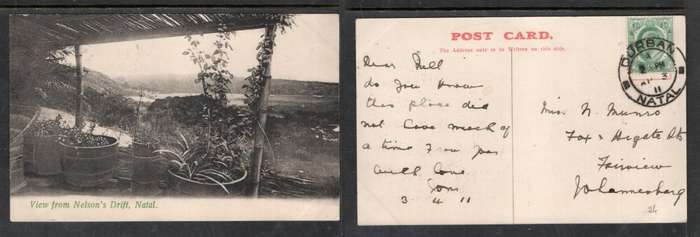 View from Nelson's Drift, Natal.
POST CARD.
The Address only to be Written on this side.
DURBAN
3
11
NATAL
Dear Nell
do you know
this place did
not have much of
a time
with love
3 4 11
Miss N. Munro
Fox & Higate Sts
Fairview
Johannesburg